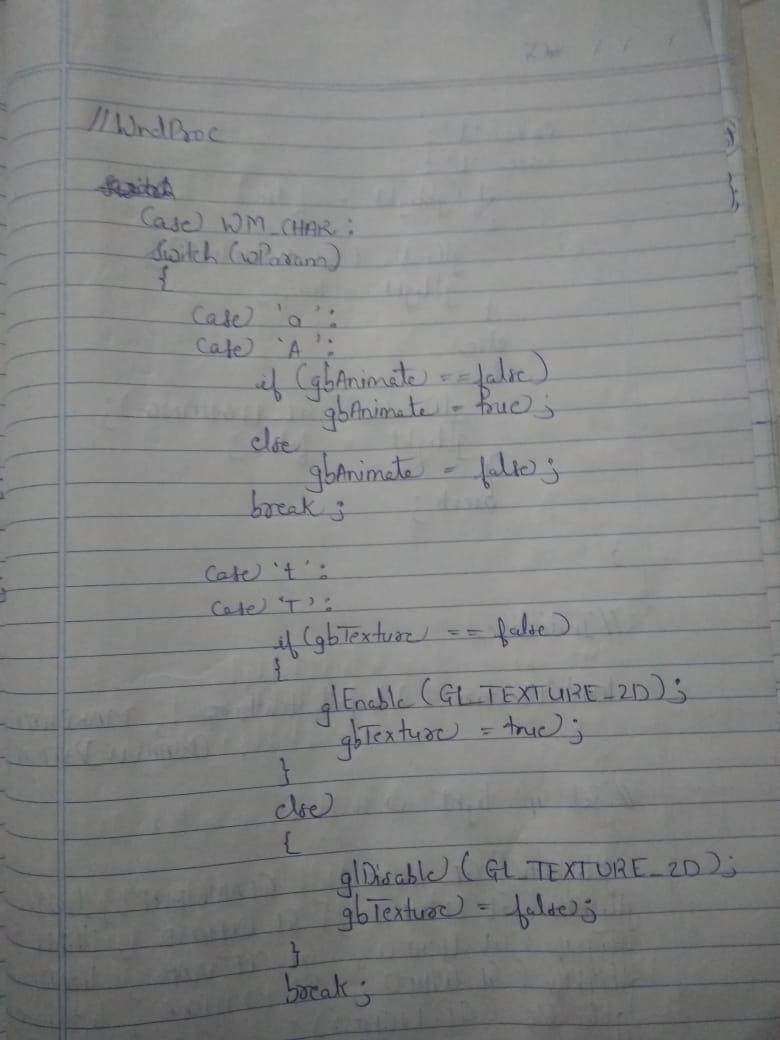 //WndProc
case WM_CHAR:
switch (wParam)
{
case 'a':
case 'A':
if (gbAnimate == false)
gbAnimate = true;
else
gbAnimate = false;
break;
case 't':
case 'T':
if (gbTexture == false)
{
glEnable (GL_TEXTURE_2D);
gbTexture = true;
}
else
{
glDisable (GL_TEXTURE_2D);
gbTexture = false;
}
break;